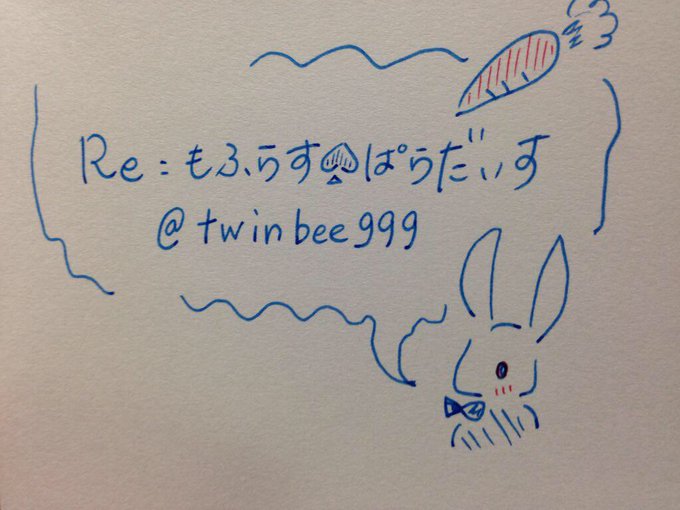 Re:もふらす♠ぱらだいす
@twinbee999